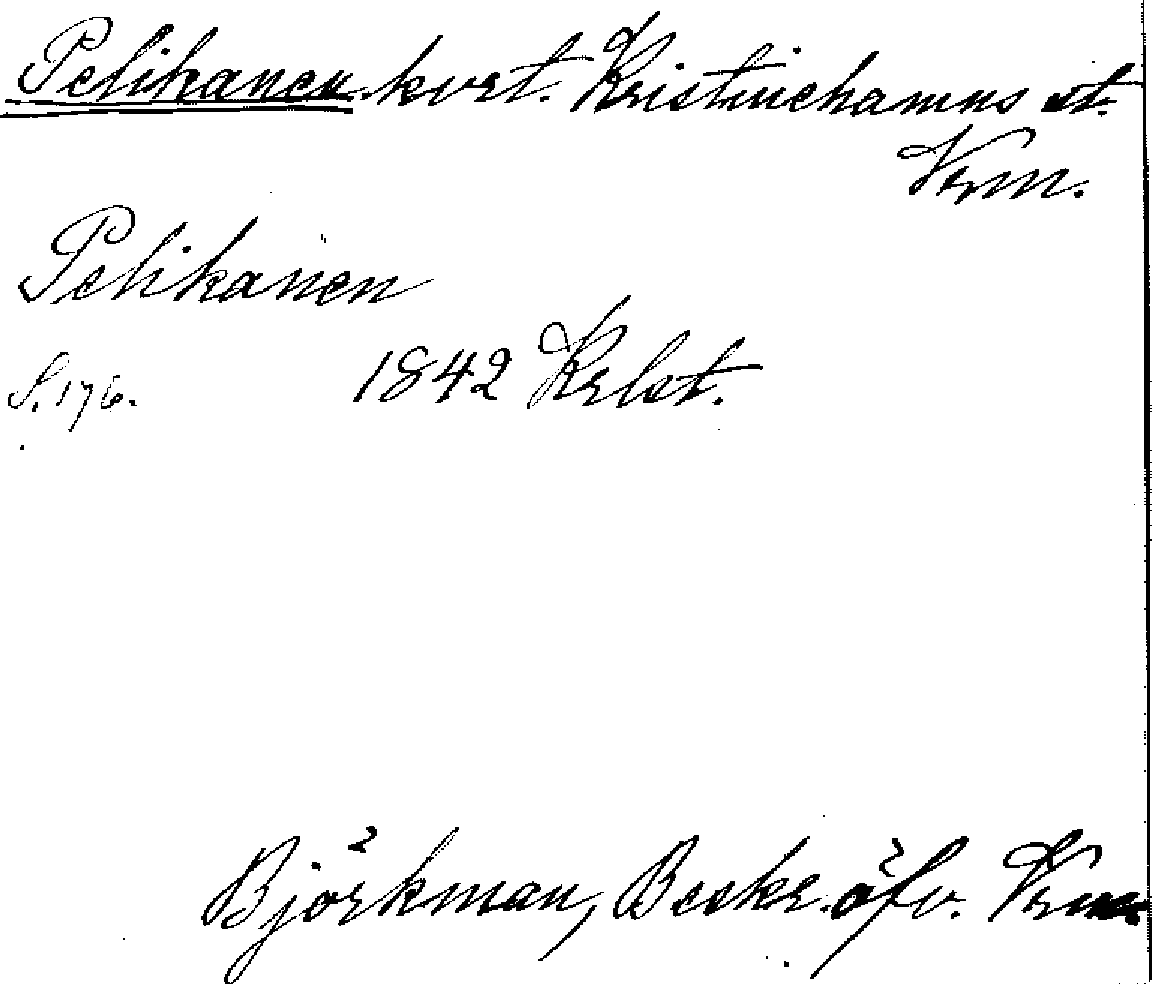 Pelikanen kvrt. Kristinehamns st.
Vrm.
Pelikanen
S. 176. 1842 Krlst.
Björkman, Beskr. öfv. Vrm.